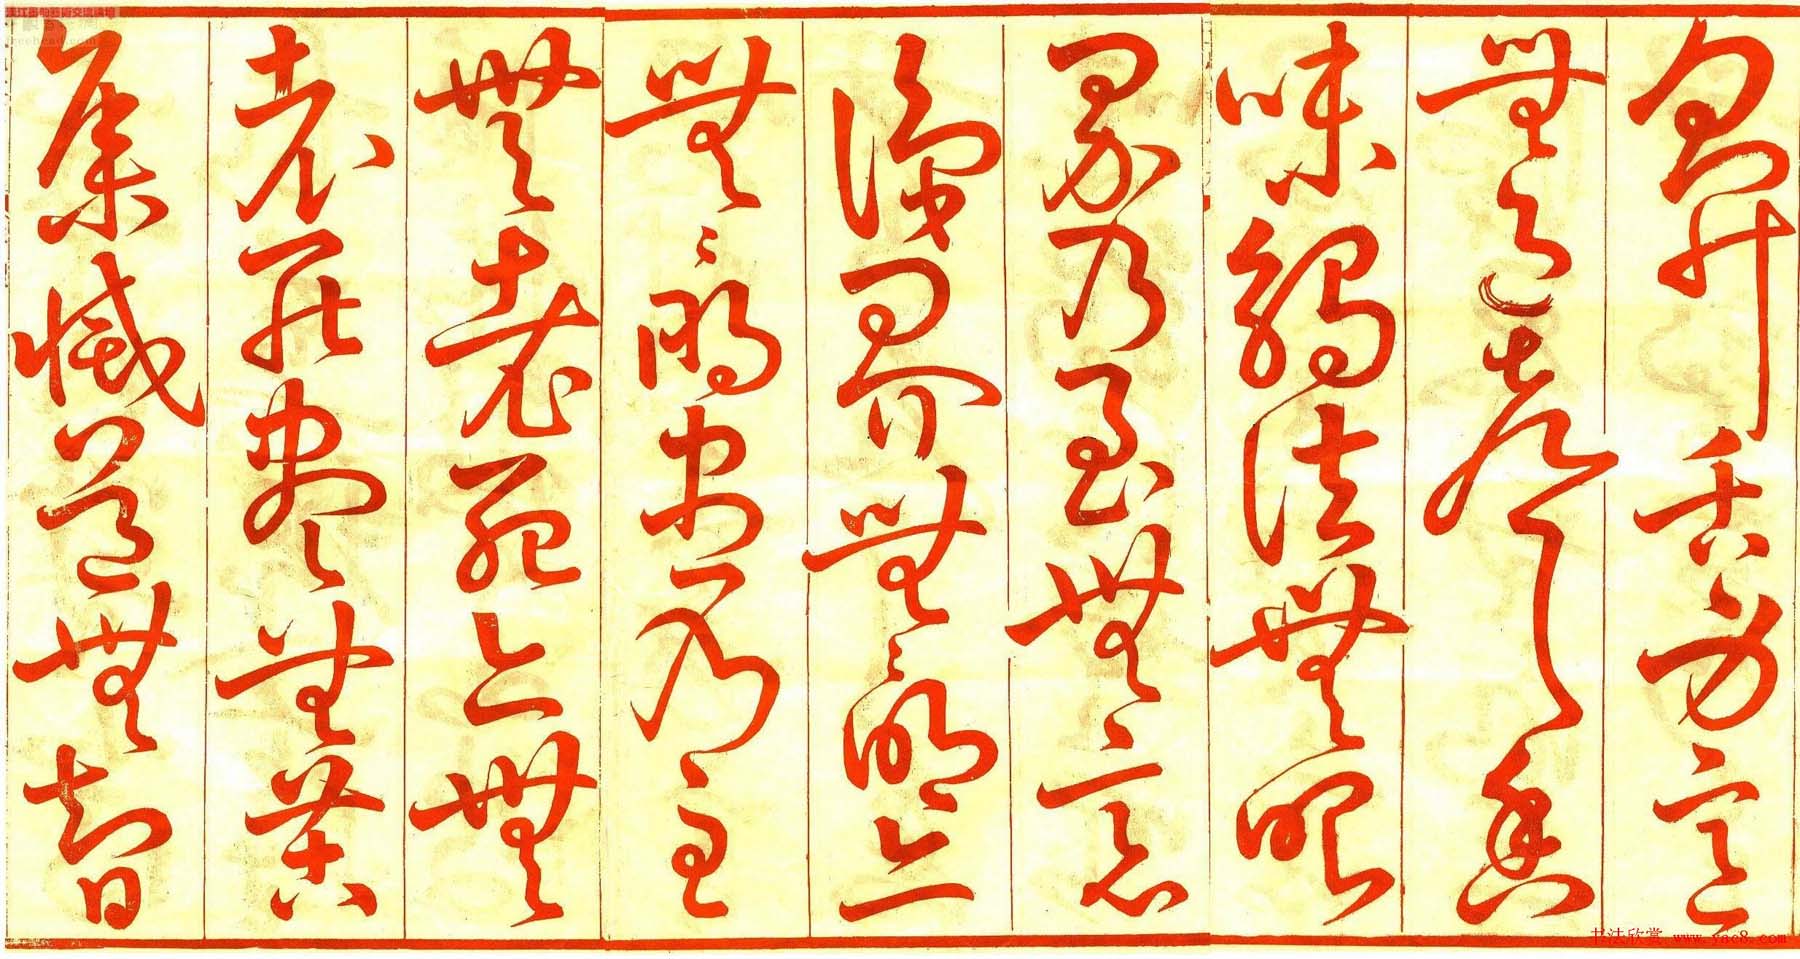 鼻舌身意
無色聲香
味觸法無眼
界乃至無意
識界無〻明亦
無〻明盡乃至
無老死亦無
老死盡無苦
集滅道無智
书法欣赏 www.yac8.com